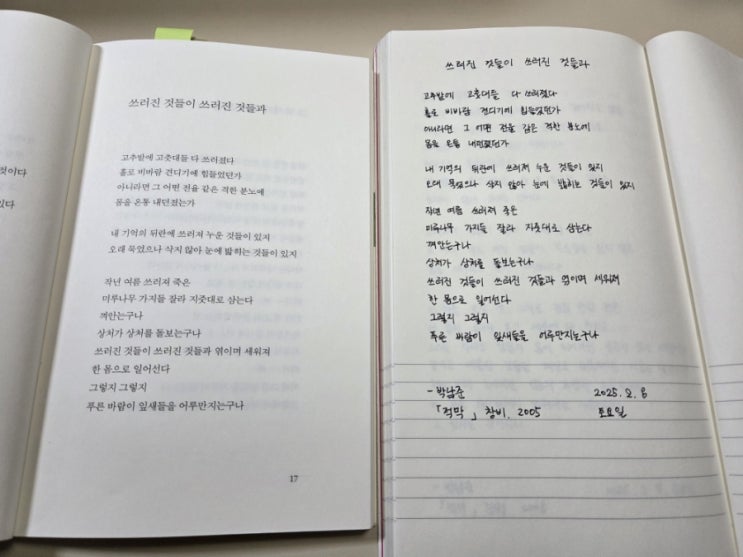 것이다
있다
쓰러진 것들이 쓰러진 것들과
고추밭에 고춧대들 다 쓰러졌다
홀로 비바람 견디기에 힘들었던가
아니라면 그 어떤 전율 같은 격한 분노에
몸을 온통 내던졌는가
내 기억의 뒤란에 쓰러져 누운 것들이 있지
오래 묵었으나 삭지 않아 눈에 밟히는 것들이 있지
작년 여름 쓰러져 죽은
미루나무 가지들 잘라 지줏대로 삼는다
껴안는구나
상처가 상처를 돌보는구나
쓰러진 것들이 쓰러진 것들과 엮이며 세워져
한 몸으로 일어선다
그렇지 그렇지
푸른 바람이 잎새들을 어루만지는구나
17
쓰러진 것들이 쓰러진 것들과
고추밭에 고춧대들 다 쓰러졌다
홀로 비바람 견디기에 힘들었던가
아니라면 그 어떤 전율 같은 격한 분노에
몸을 온통 내던졌던가
내 기억의 뒤란에 쓰러져 누운 것들이 있지
오래 묵었으나 삭지 않아 눈에 밟히는 것들이 있지
작년 여름 쓰러져 죽은
미루나무 가지들 잘라 지줏대로 삼는다
껴안는구나
상처가 상처를 돌보는구나
쓰러진 것들이 쓰러진 것들과 엮이며 세워져
한 몸으로 일어선다
그렇지 그렇지
푸른 바람이 잎새들을 어루만지는구나
- 박남준 2025. 2. 8
「적막」 창비. 2005 토요일